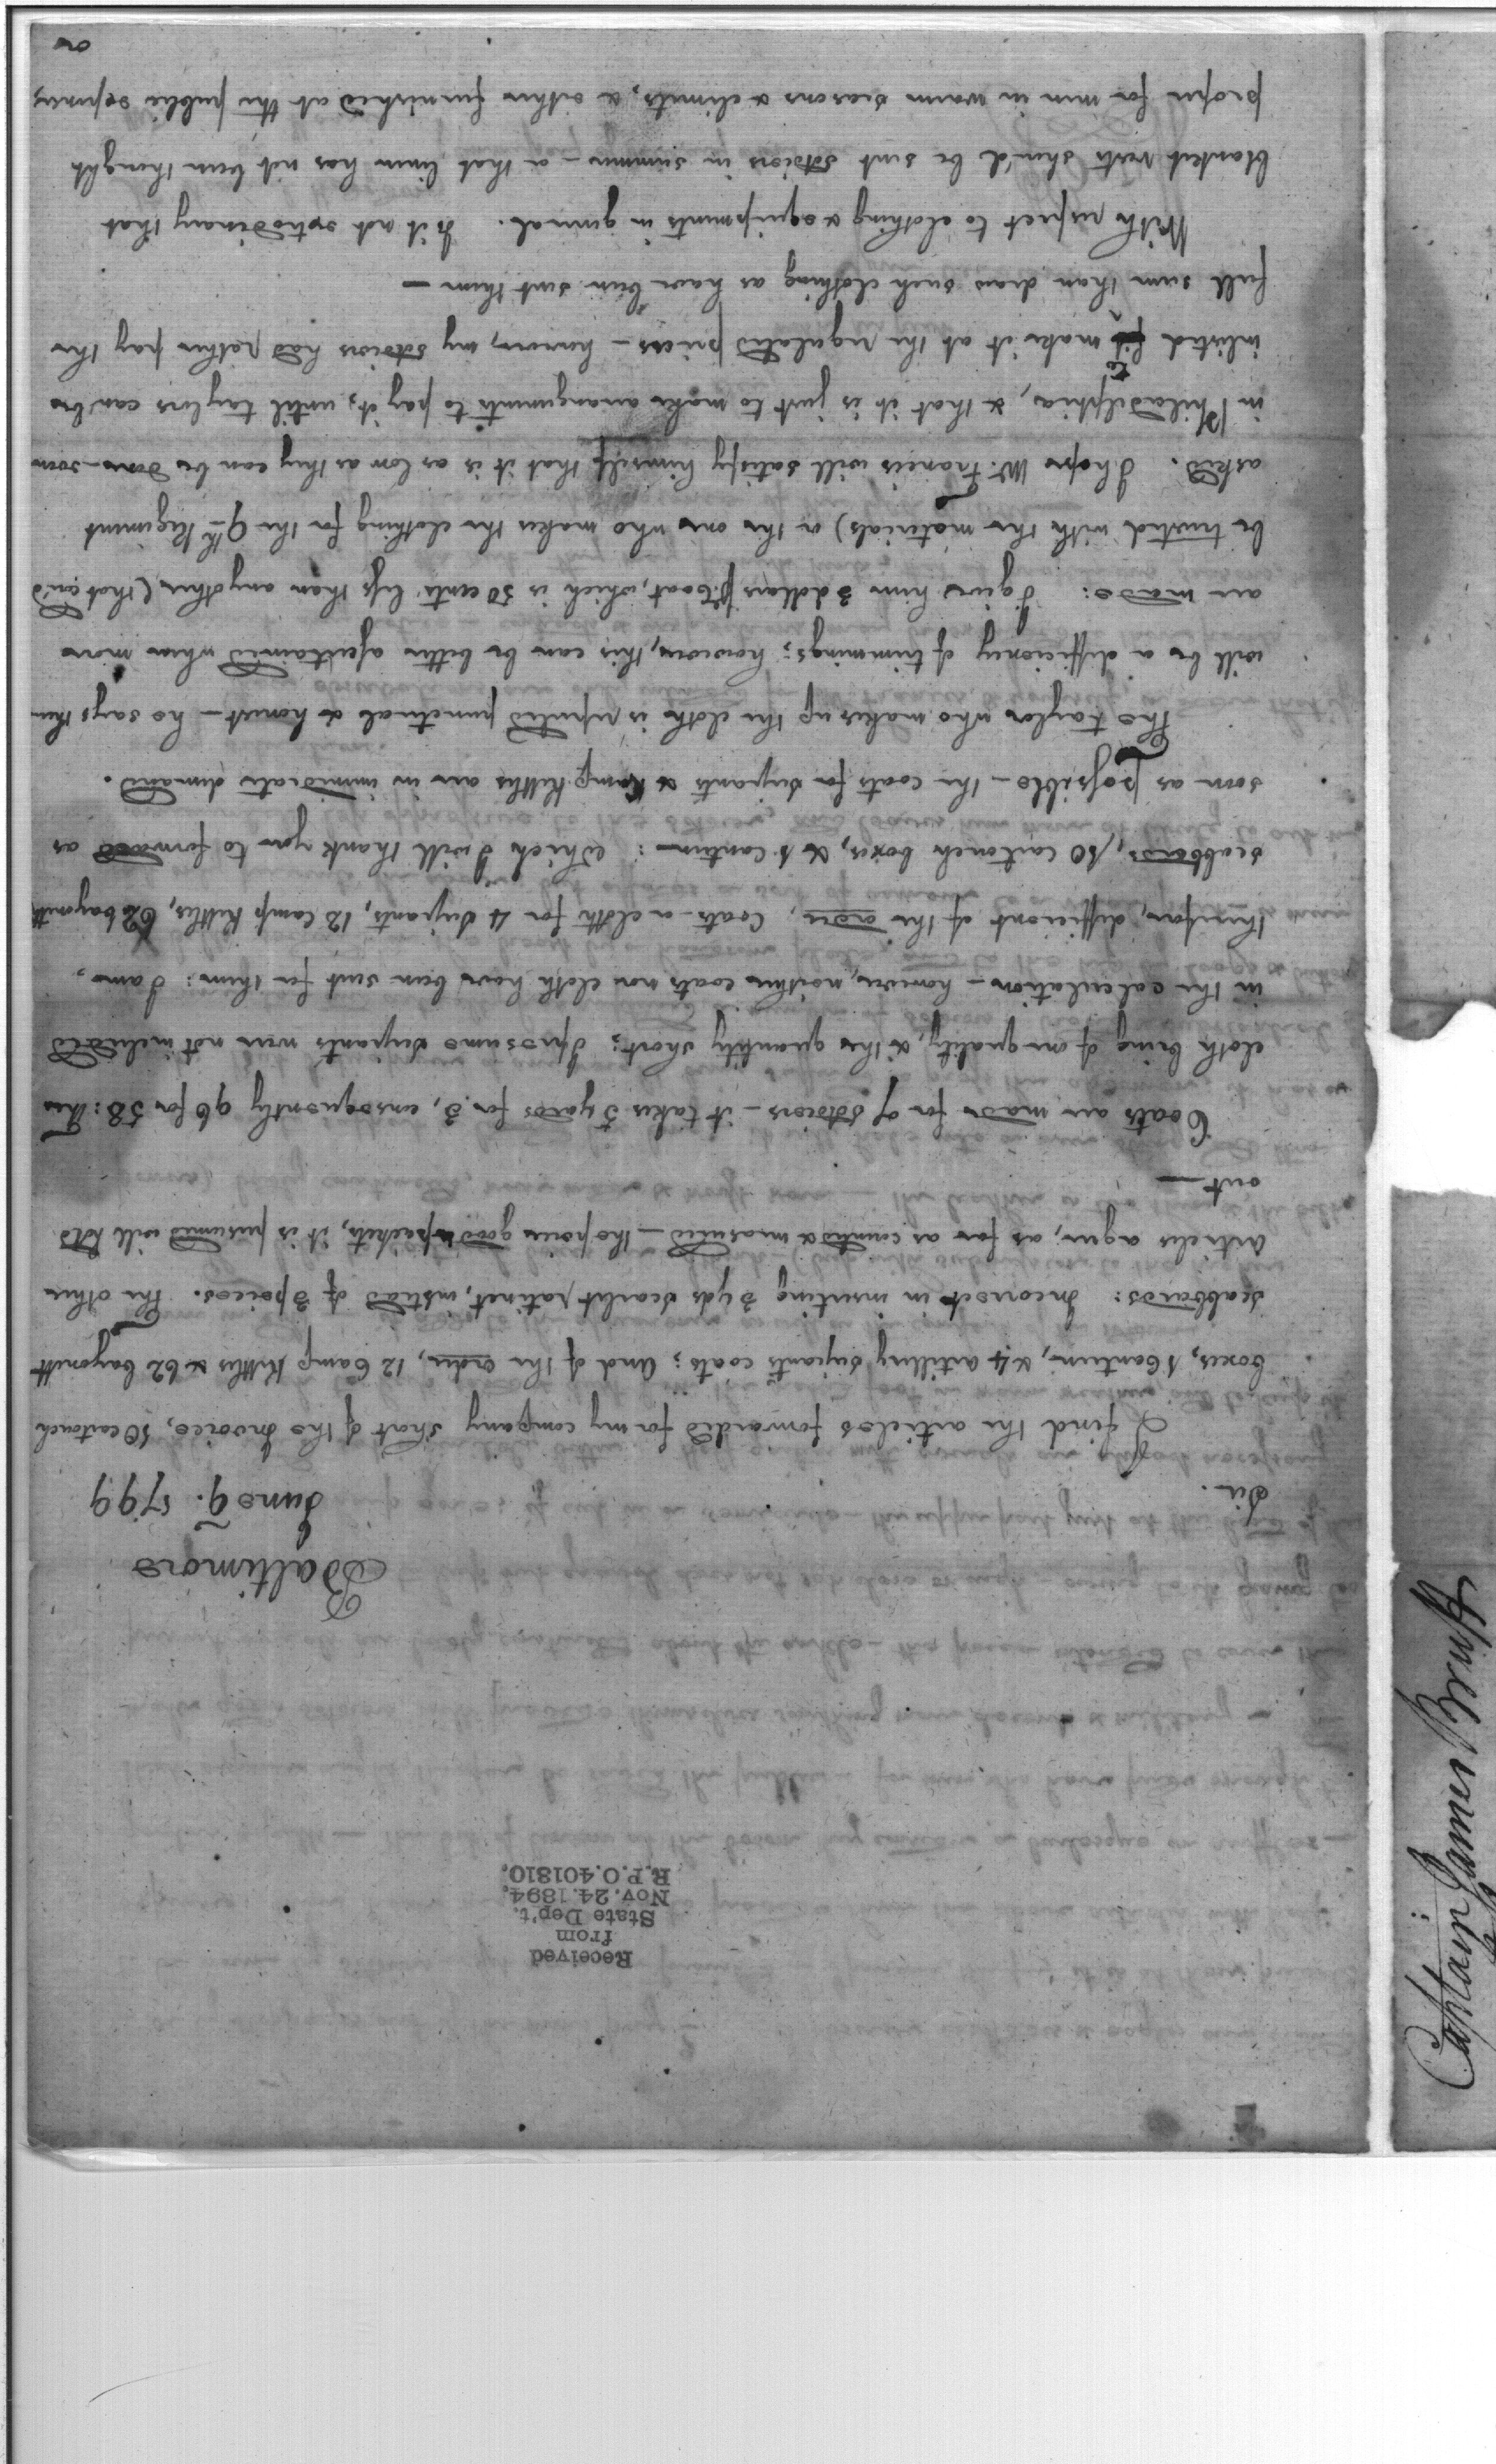 Received
from
State Dep't.
Nov. 24. 1894,
R.P.O. 401810.
Baltimore
June 9. 1799
Sir.
I find the articles forwarded for my company short of the Invoice, 10 cartouch
boxes, 1 Canteen, & 4 artillery serjeants coats; And of the order, 12 Camp Kettles & 62 bayonett
scabbards: Incorrect in inserting 3 yds scarlet ratinet, instead of 3 peices. The other
Articles agree, as far as counted & measured - the peice good & packets, it is presumed will hold
out —
Coats are made for 7 soldiers - it takes 5 yards for 3, consequently 96 for 58: The
cloth being of one quality, & the quantity short; I presume serjeants were not included
in the calculation - however, neither coats nor cloth have been sent for them: I am,
therefore, difficient of the order, Coats or cloth for 4 serjeants, 12 Camp Kettles, 62 bayonett
scabbards, 10 cartouch boxes, & 1 canteen: Which I will thank you to forward as
soon as possible - the coats for serjeants & Camp Kettles are in immediate demand.
The taylor who makes up the cloth is reputed punctual & honest - he says there
will be a difficiency of trimmings; however, this can be better ascertained when more
are made: I give him 3 dollars p. Coat, which is 50 cents less than any other, (that cou'd
be trusted with the materials) or the one who makes the clothing for the 9th Regiment
asked. I hope Mr. Francis will satisfy himself that it is as low as they can be done - even
in Philadelphia, & that it is just to make arangements to pay it; until taylors can be
inlisted to make it at the regulated prices - however, my soldiers had rather pay the
full sum than draw such clothing as have been sent them —
With respect to clothing & equipments in general. Is it not extrodinary that
blanket vests shou'd be sent soldiers in summer - or that linen has not been thought
proper for men in warm seasons & climets, & either furnished at the public expence,
or
Captain James Bruff